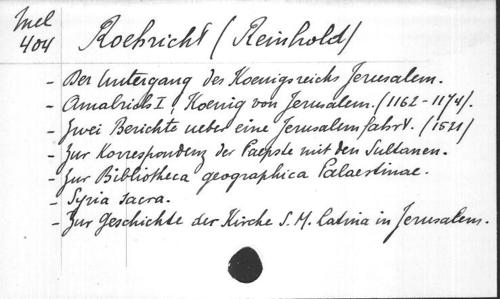 Mel
404
Roehricht (Reinhold)
- Der Untergang des Koenigreichs Jerusalem.
- Amalrich I, Koenig von Jerusalem. (1162-1174).
- Zwei Berichte ueber eine Jerusalemfahrt. (1521)
- Zur Korrespondenz der Paepste mit den Sultanen.
- Zur Bibliotheca geographica Palaestinae.
- Syria sacra.
- Zur Geschichte der Kirche S. M. Latina in Jerusalem.